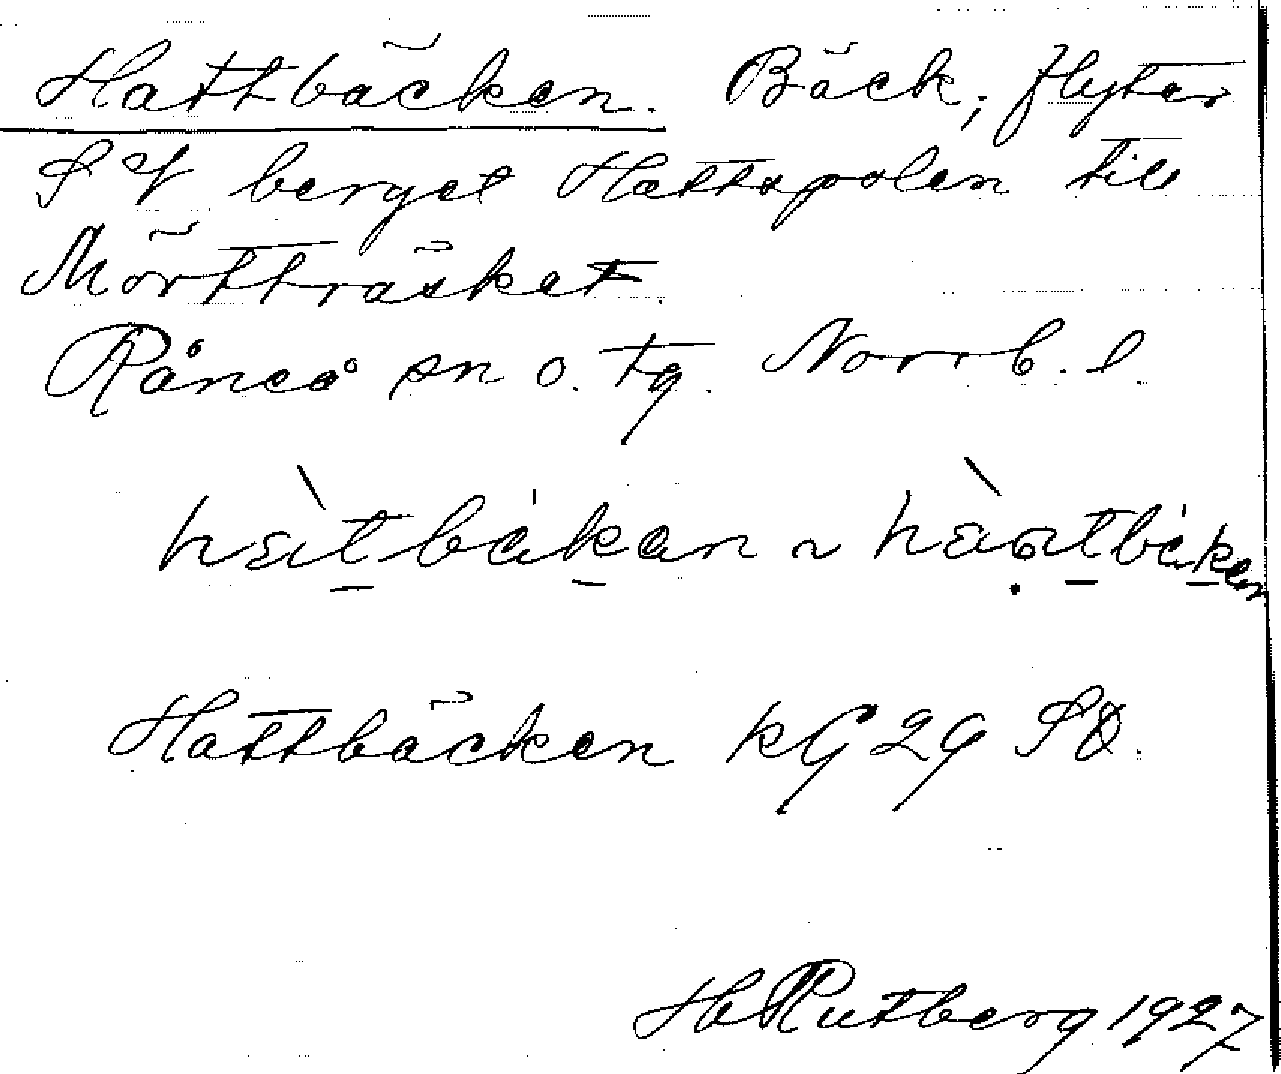 Hattbäcken. Bäck, flyter
SV berget Hattspolen till
Mörtträsket.
Råneå sn o. tg. Norrb. l.
Hattbäcken kG 29 SO.
H Rutberg 1927